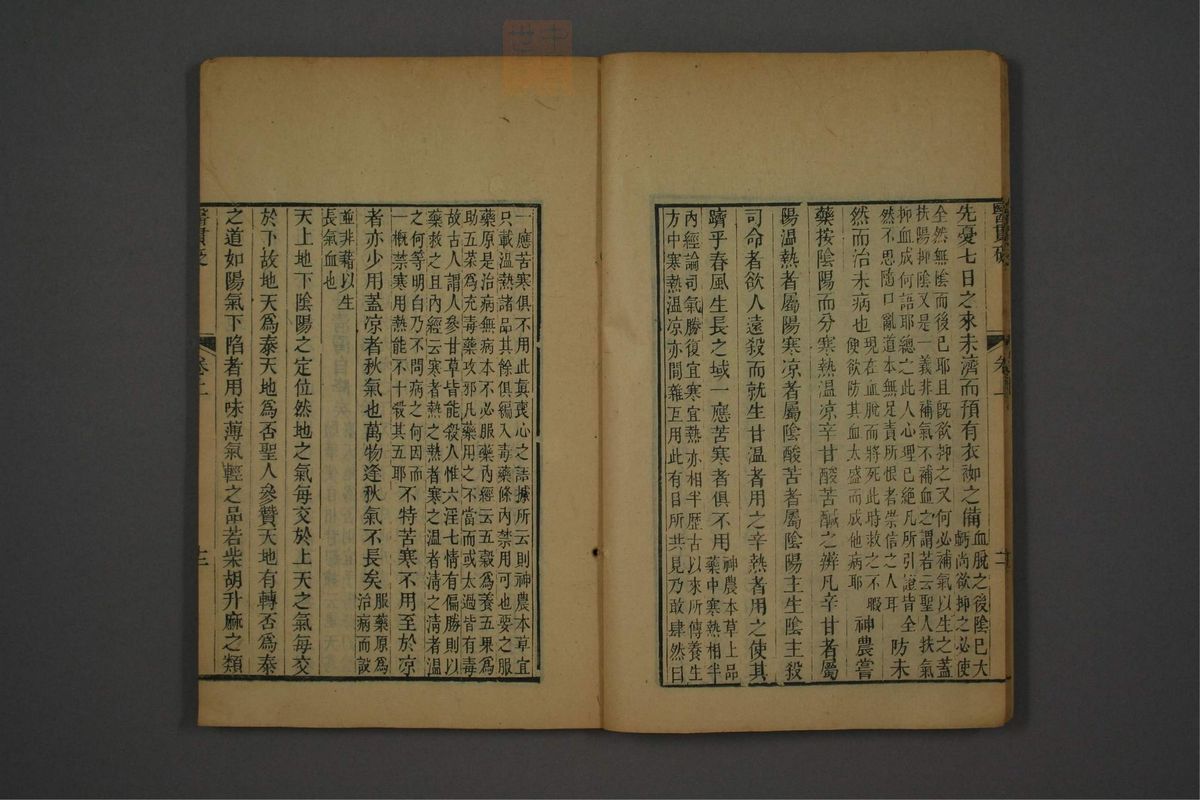 醫貫砭
卷上
二
先憂七日之來未濟而預有衣袽之備血脫之後陰已大
虧尚欲抑之必使
全然無陰而後已耶且旣欲抑之又何必補氣以生之蓋
扶陽抑陰又是一義非補氣不補血之謂若云聖人扶氣
抑血成何語耶總之此人心理已絕凡所引證皆全
然不思隨口亂道本無足責所恨者崇信之人耳
防未
然而治未病也
現在血脫而將死此時救之不暇
便欲防其血太盛而成他病耶
神農嘗
藥按陰陽而分寒熱溫涼辛甘酸苦鹹之辨凡辛甘者屬
陽溫熱者屬陽寒凉者屬陰酸苦者屬陰陽主生陰主殺
司命者欲人遠殺而就生甘溫者用之辛熱者用之使其
躋乎春風生長之域一應苦寒者俱不用
神農本草上品
藥中寒熱相半
內經論司氣勝復宜寒宜熱亦相半歷古以來所傳養生
方中寒熱溫凉亦間雜互用此有目所共見乃敢肆然曰
一應苦寒俱不用此眞喪心之語據所云則神農本草宜
只載溫熱諸品其餘俱編入毒藥條內禁用可也要之服
藥原是治病無病本不必服藥內經云五穀爲養五果爲
助五菜爲充毒藥攻邪凡藥用之不當而或太過皆有毒
故古人謂人參甘草皆能殺人惟六淫七情有偏勝則以
藥救之且內經云寒者熱之熱者寒之溫者淸之淸者溫
之何等明白乃不問病之何因而
一概禁寒用熱能不十殺其五耶
不特苦寒不用至於凉
者亦少用蓋凉者秋氣也萬物逢秋氣不長矣
服藥原爲
治病而設
並非藉以生
長氣血也
天上地下陰陽之定位然地之氣每交於上天之氣每交
於下故地天爲泰天地爲否聖人參贊天地有轉否爲泰
之道如陽氣下陷者用味薄氣輕之品若柴胡升麻之類
醫貫砭
卷上
三